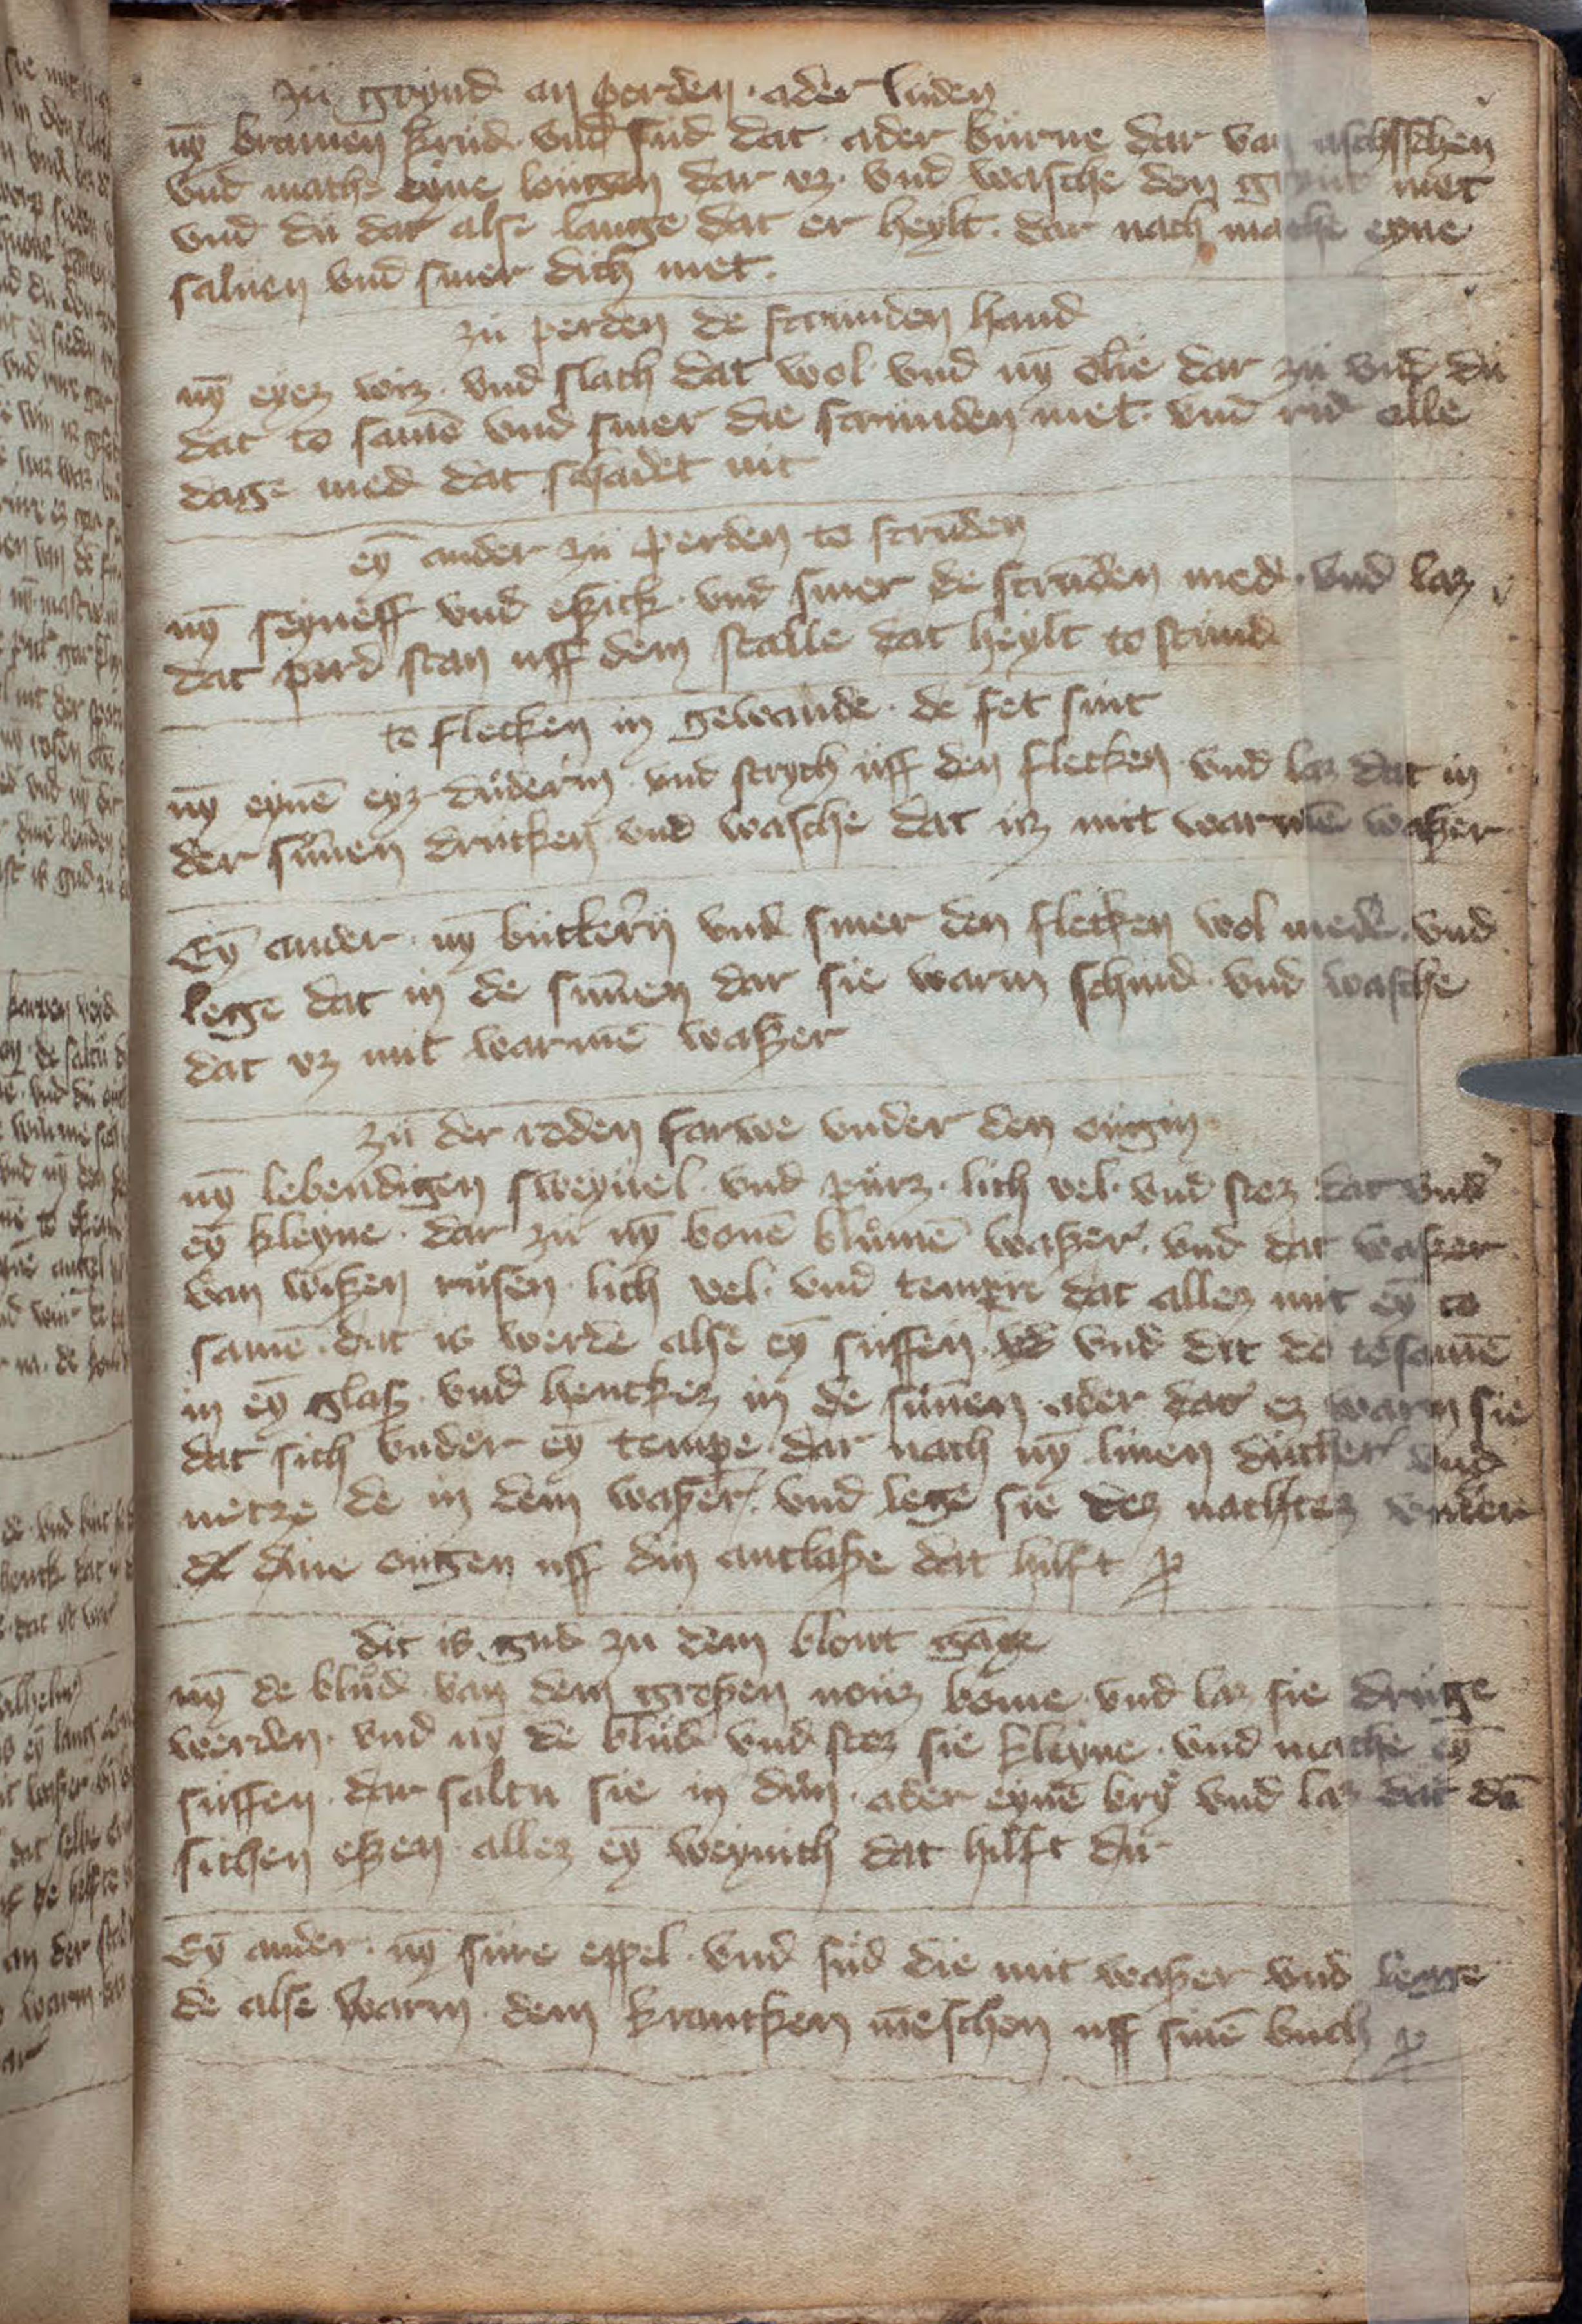 zü grynd an perden · ader lüden
nȳ bramen krüd · vnd süd dat · ader bürne dar van aschschen
vnd mache eyne lougen dar vz · vnd wasche den grynt met
vnd dü dat alse lange dat er heylt · dar nach mache eyne
saluen vnd smer dich met ·
zü perden de scrunden hand
nȳ eyez wiz · vnd slach dat wol · vnd nȳ olie dar zü vnd dü
dat to samē vnd smer die scrunden met · vnd rid alle
dage med dat schadet nit
eȳ ander zü perden to scrūden
nȳ seyneff vnd eßick · vnd smer de scrūden med · vnd laz
dat perd stan uff dem stalle dat heylt to stund
to flecken in gewande · de fet sint
nȳ eynē eyz düderm · vnd strych üff den flecken · vnd laz dat in
der sūnen drucken vnd wasche dat uz mit warmē waßer
Eȳ ander · nȳ buttern vnd smer den flecken wol mede · vnd
lege dat in de sūnen dar sie warm schind · vnd wasche
dat vz mit warmē waßer
zü der roden farwe vnder den ougin
nȳ lebendigen sweyuel · vnd pürz · lich vel · vnd stoz dat vnder
eȳ kleyne · dar zü nȳ bonē blümē waßer · vnd dat waßer
van wißen rüsen · lich vel · vnd temper dat allez mit eȳ to
samē · dat is werde alse eȳ süffen · vnd dit do tosamē
in eȳ glaß · vnd henckez in de sünen · ader dat ez warm sie
dat sich vnder eȳ tempe · dar nach nȳ linen dücher vnd
netze de in dem waßer · vnd lege sie dez nachtez vnder
dine ougen uff din antlaße dat hilft
dit is gud zu dem blout gāge
nȳ de blüd van dem großen nouz bome · vnd laz sie druge
werden · vnd nȳ de blüd vnd stoz sie kleyne · vnd mache eȳ
süffen · dar saltu sie in dün · ader eynē bry vnd laz dat dē
sichen eßen allez eȳ weynich dat hilft dir
Eȳ ander · nȳ süre eppel · vnd süd die mit waßer vnd legge
de alse warm · dem krancken mēschen uff sinē buch